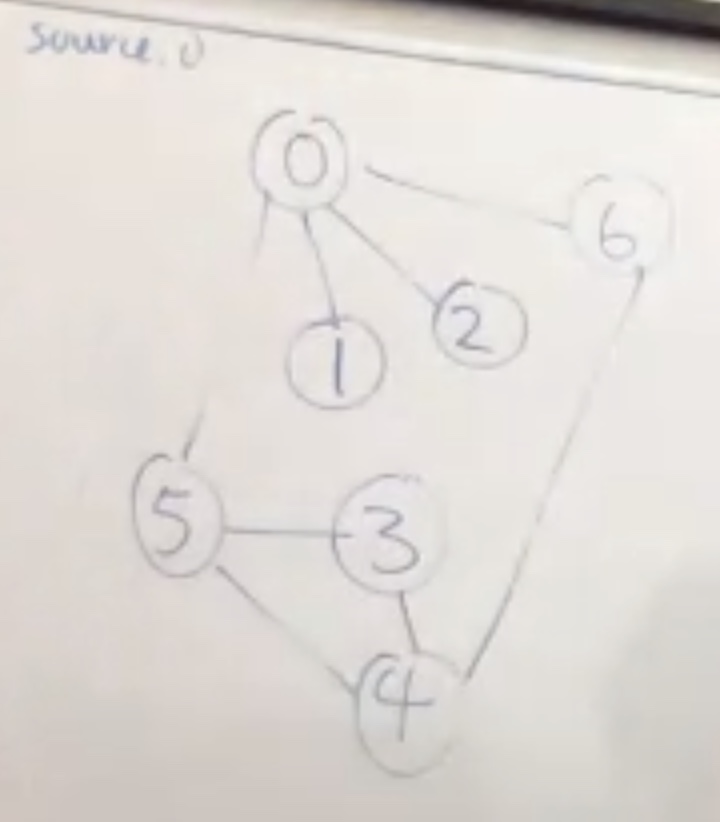 source. 0
0
6
2
1
5
3
4